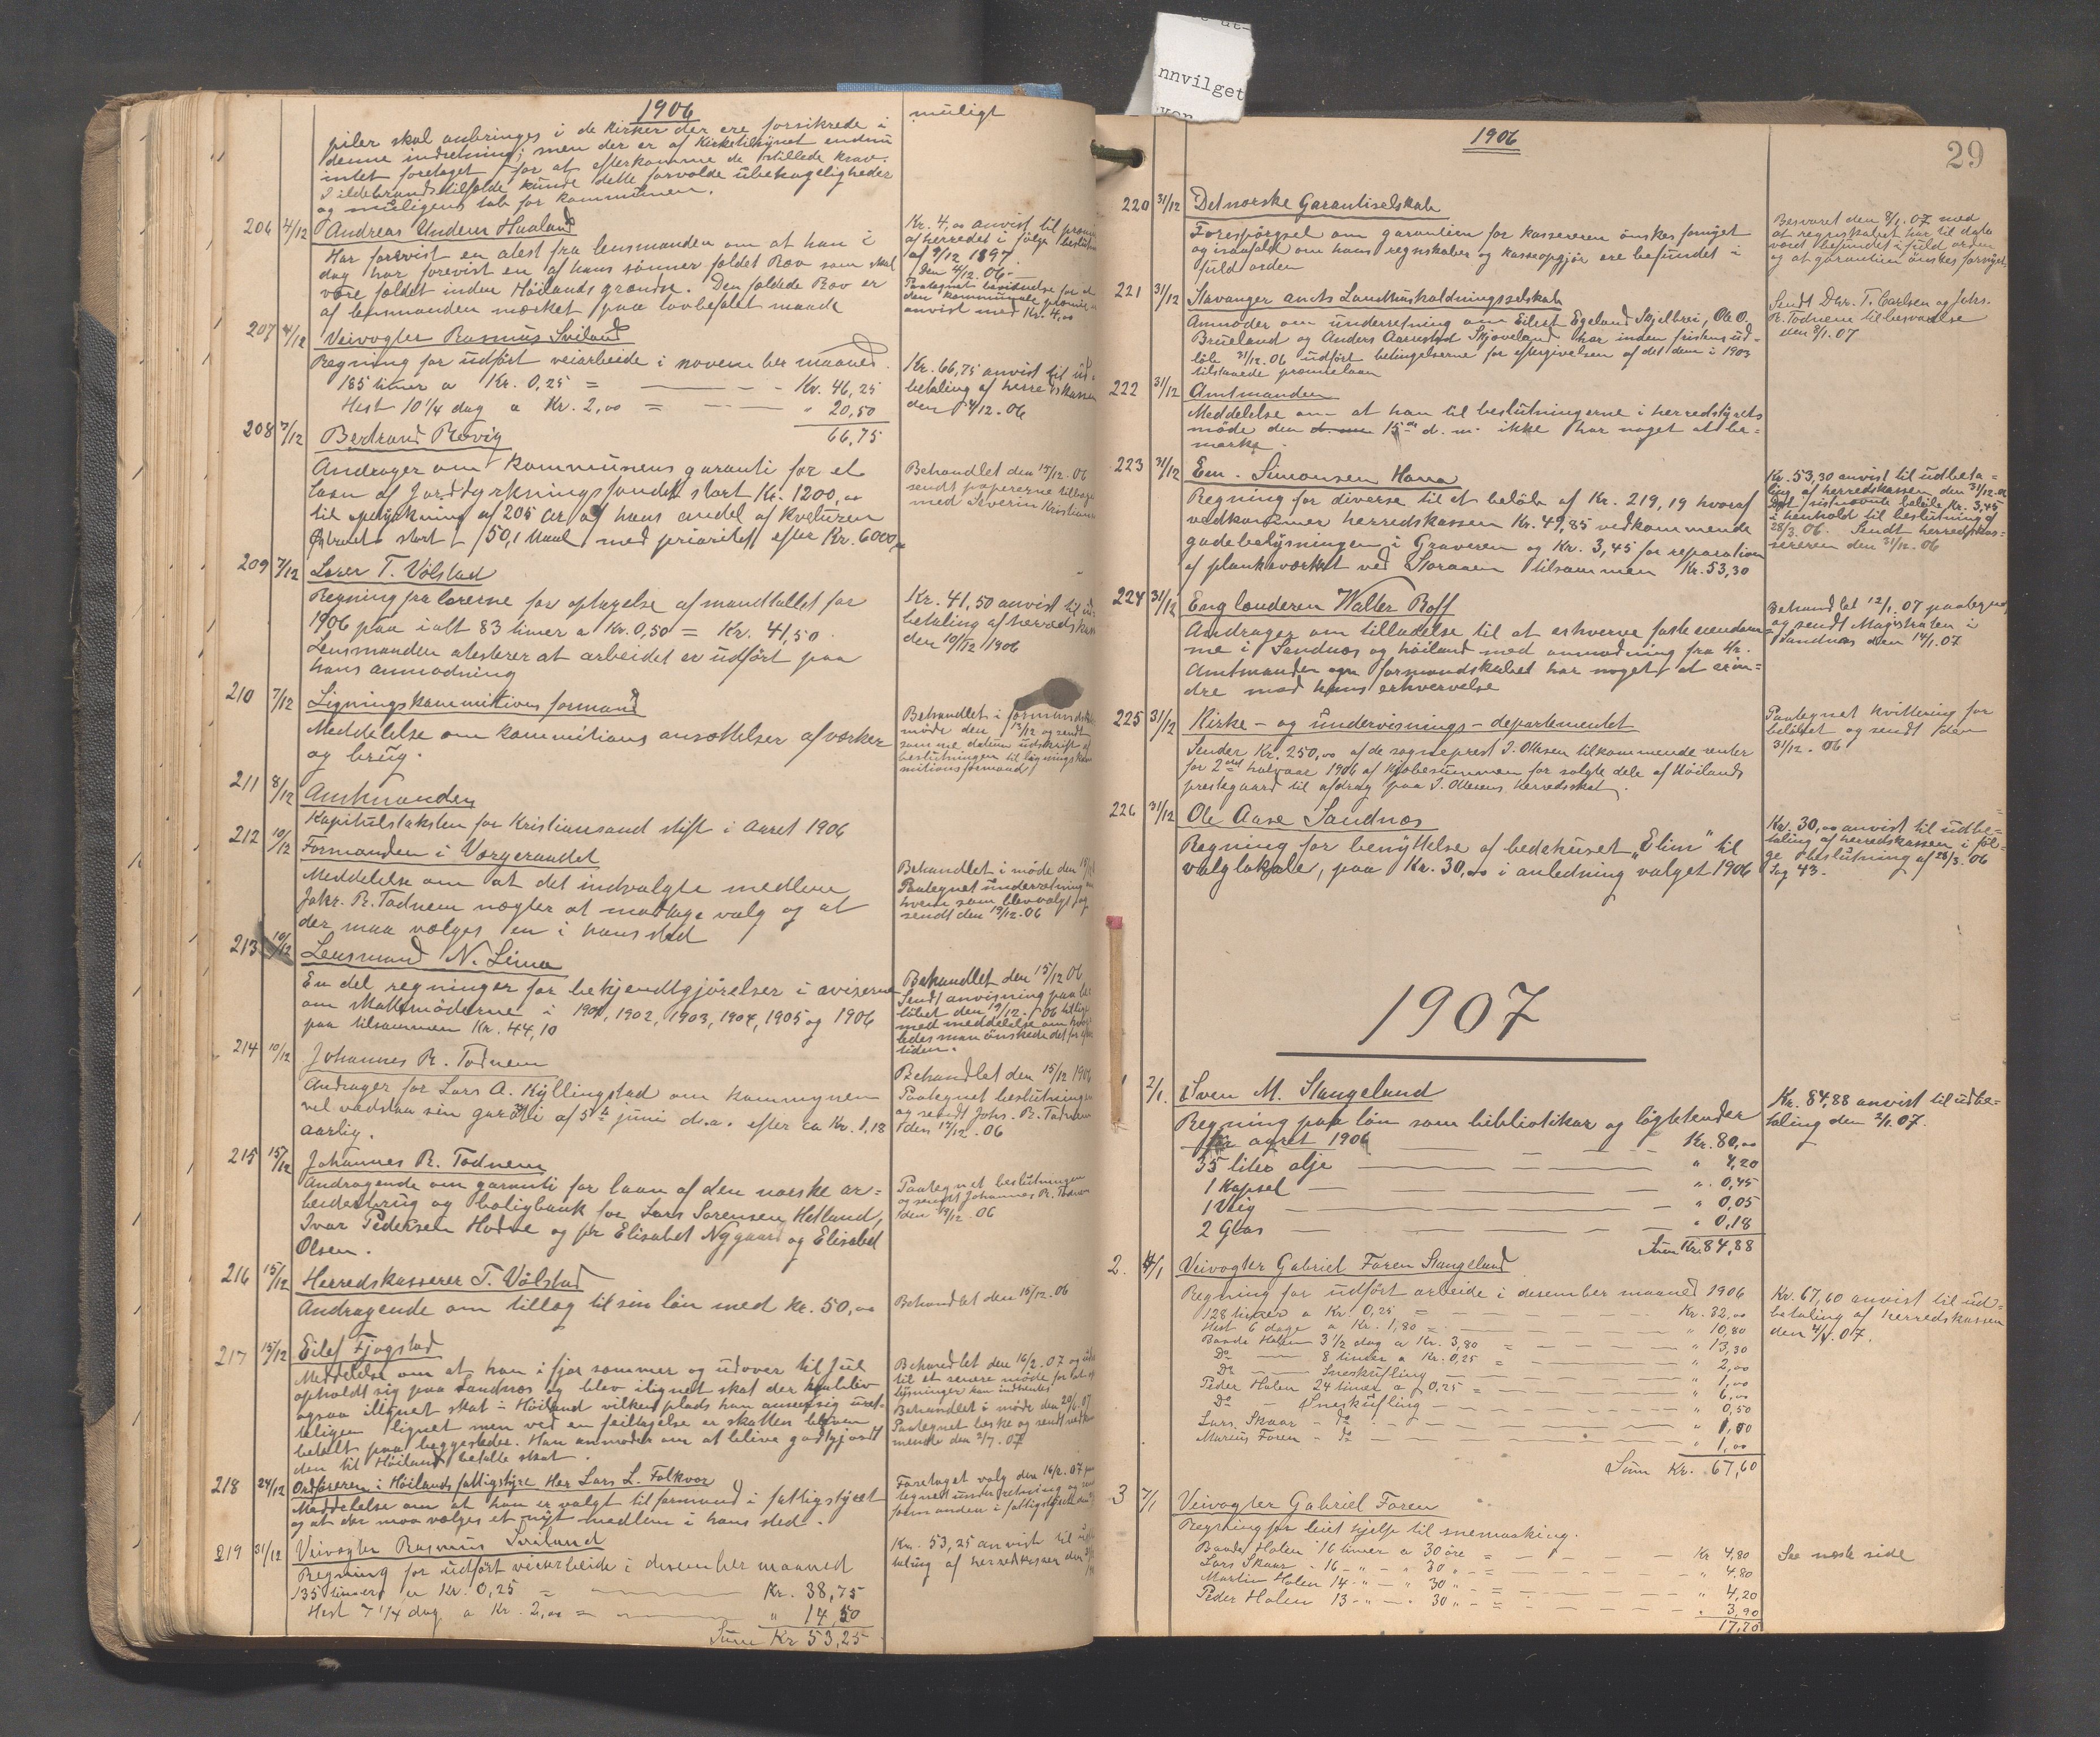 1906
piler skal anbringes i de Kirker der ere forsikrede i
denne indretning; men der er af Kirketilsynet endnu
intet foretaget for at efterkomme de stillede krav.
I ildebrandstilfælde kunde dette forvolde ubehageligheder
og muligens tab for kommunen.
muligt
206 4/12 Andreas Undem Haaland
Har forevist en atest fra lensmanden om at han i
dag har forevist en af hans sønner fældet Ræv som skal
være fældet inden Höilands grændse. Den fældede Ræv er
af lensmanden mærket paa lovbefalet maade
Kr. 4,00 anvist til
af herredet i følge
af 9/12 1897.
Den 4/12.06.
Paategnet
den kommunale præmie
anvist med Kr. 4,00
207 4/12 Veivogter Rasmus Sviland
Regning for udført veiarbeide i november maaned.
185 timer a Kr. 0,25 = Kr. 46,25
Hest 10 1/4 dag a Kr. 2,00 = " 20,50
66,75
Kr. 66,75 anvist til ud-
betaling af herredskassen
den 4/12.06
208 7/12 Bertrand Rævig
Andrager om kommunens garanti for et
laan af Jorddyrkningsfondet stort Kr. 1200,00
til opdyrkning af 205 ar af hans andel af Kvelluren
stort 50,1 Maal med prioritet efter Kr. 6000,00
Behandlet den 15/12.06
sendt papererne tilbage
med Severin Kristian
209 7/12 Lærer T. Völstad
Regning fra lærerne for optagelse af mandtallet for
1906 paa ialt 83 timer a Kr. 0,50 = Kr. 41,50.
Lensmanden atesterer at arbeidet er udfört paa
hans anmodning
Kr. 41,50 anvist til ud
betaling af herredskas
den 10/12 1906
210 7/12 Ligningskommitions formand
Meddelelse om kommitions ansættelser af værker
og brug.
Behandlet i formandskabs
möde den 15/12 og sendt
samme datum udskrift af
beslutningen til lignings
mitions formand
211 8/12 Amtmanden
Kapitulstaksten for Kristiansand stift i Aaret 1906
212 10/12 Formanden i Værgeraadet
Meddelelse om at det indvalgte medlem
Johs. R. Todnem nægter at modtage valg og at
der maa vælges en i hans sted
Behandlet i möde den 15/12
Paategnet underretning om
hvem som blev valgt og
sendt den 19/12.06
213 10/12 Lensmand N. Lima
En del regninger for bekjendtgjörelser i aviserne
om Mattemöderne i 1901, 1902, 1903, 1904, 1905 og 1906
paa tilsammen Kr. 44,10
Behandlet den 15/12 06
Sendt anvisning paa be
löbet den 19/12.06 tillige
med meddelelse om hvor
ledes man önskede det for
tiden.
214 10/12 Johannes R. Todnem
Andrager for Lars A. Kyllingstad om kommunen
vil vedstaa sin garanti af 5te juni d.a. efter ca Kr. 1,18
aarlig.
Behandlet den 15/12 1906
Paategnet beslutningen
og sendt Johs. R. Todnem
den 17/12.06
215 15/12 Johannes R. Todnem
Andragende om garanti for laan af den norske ar=
beiderbrug og boligbank for Lars Sørensen Hetland,
Ivar Pedersen Hodne og for Elisabet Nygaard og Elisabet
Olsen.
Paategnet beslutningen
og sendt Johannes R. Todnem
den 19/12 06
216 15/12 Herredskasserer T. Völstad
Andragende om tillæg til sin lön med kr. 50,00
Behandlet den 15/12.06
217 15/12 Eilef Fjogstad
Meddelelse om at han i fjor sommer og udover til Jul
opholdt sig paa Sandnæs og blev ilignet skat der
ogsaa ilignet skat i Höiland vilken plads han anser sig uret-
teligen lignet men ved en feiltagelse er skatten bleven
betalt paa begge steder. Han anmoder om at blive godtgjordt
den til Höiland betalte skat.
Behandlet den 16/2.07 og
til et senere möde for at
lysninger kan indhentes
Behandlet i möde den 20/6.07
Paategnet
mende den 2/7.07
218 24/12 Ordföreren i Höilands fattigstyre Her Lars L. Folkvor
Meddelelse om at han er valgt til formand i fattigstyret
og at der maa vælges et nyt medlem i hans sted.
Foretaget valg den 16/2.07
tegnet underretning og
formanden i fattigstyret
219 31/12 Veivogter Rasmus Sviland
Regning for udført veiarbeide i desember maaned
135 timer a Kr. 0,25 = Kr. 38,75
Hest 7 1/4 dag a Kr. 2,00 = " 14,50
Sum Kr 53,25
Kr. 53,25 anvist til
taling af herredskassen den
nnvilget
1906
29
220 31/12 Det norske Garantiselskab
Forespörgsel om garantien for kassereren önskes fornyet
og isaafald om hans regnskaber og kasseopgjör ere befundet i
fuld orden
Besvaret den 8/1.07 med
at regnskabet har til dato
været befundet i fuld orden
og at garantien önskes fornyet.
221 31/12 Stavanger amts Landhusholdningsselskab
Anmoder om underretning om Eilert Egeland Skjelbrei, Ole O.
Brueland og Anders Aarrestad Skjæveland har inden fristens ud=
löb 31/12.06 udfört betingelserne for eftergivelsen af det dem i 1903
tilstaaede præmielaan
Sendt Dhr. T. Carlsen og Johs.
R. Todnem til besvarelse
den 8/1.07
222 31/12 Amtmanden
Meddelelse om at han til beslutningerne i herredstyrets
möde den 15de d.m. ikke har noget at be=
mærke.
223 31/12 Em. Simonsen Hana
Regning for diverse til et belöb af Kr. 219,19 hvoraf
vedkommer herredskassen Kr. 49,85 vedkommende
gadebelysningen i Graveren og Kr. 3,45 for reparation
af plankeværket ved Storaaen tilsammen Kr. 53,30
Kr. 53,30 anvist til udbeta=
ling af herredskassen den 31/12.06
sidstnævnte belöb Kr. 3,45
i henhold til beslutning af
28/3.06. Sendt herredskas=
sereren den 31/12.06
224 31/12 Englænderen Walter Roff
Andrager om tilladelse til at erhverve faste eiendom=
me i Sandnæs og Höiland med anmodning fra Hr.
Amtmanden om formandskabet har noget at erin=
dre mod hans erhvervelse
Behandlet 12/1.07 paategnet
og sendt Magistraten i
Sandnæs den 14/1.07
225 31/12 Kirke- og undervisnings-departementet
Sender Kr. 250,00 af de sogneprest J. Ollesen tilkommende renter
for 2det halvaar 1906 af Kjøbesummen for solgte dele af Höilands
prestegaard til afdrag paa J. Ollesens herredsskat.
Paategnet kvittering for
belöbet og sendt den
31/12.06
226 31/12 Ole Aase Sandnæs
Regning for benyttelse af bedehuset „Elim" til
valglokale, paa Kr. 30,00 i anledning valget 1906
Kr. 30,00 anvist til udbe=
taling af herredskassen i föl=
ge beslutning af 28/3.06
Sag 43.
1907
1 2/1. Sven M. Stangeland
Regning paa lön som bibliotikar og lögtetænder
for aaret 1906 Kr. 80,00
35 liter olje " 4,20
1 Kapsel " 0,45
1 Væg " 0,05
2 Glas " 0,18
Sum Kr. 84,88
Kr. 84,88 anvist til udbe=
taling den 2/1.07.
2. 4/1 Veivogter Gabriel Foren Stangeland
Regning for udfört arbeide i desember maaned 1906
128 timer a Kr 0,25 = Kr. 32,00
Hest 6 dage a Kr. 1,80 = " 10,80
Baarde Holen 3 1/2 dag a Kr. 3,80 = " 13,30
Do 8 timer a Kr. 0,25 = " 2,00
Do Sneskufling " 1,00
Peder Holen 24 timer a 0,25 = " 6,00
Do - Sneskufling " 0,50
Lars Skaar - do " 1,00
Marius Foren - do " 1,00
Sum Kr. 67,60
Kr. 67,60 anvist til ud=
betaling af herredskassen
den 4/1.07.
3 7/1 Veivogter Gabriel Foren
Regning for leiet hjelp til snemaaking.
Baarde Holen 16 timer a 30 öre = Kr 4,80
Lars Skaar - 16 - " - " 30 " = " 4.80
Martin Holen 14 - " - " 30 " = " 4,20
Peder Holen 13 - " - " 30 " = " 3,90
17,70
Se næste side